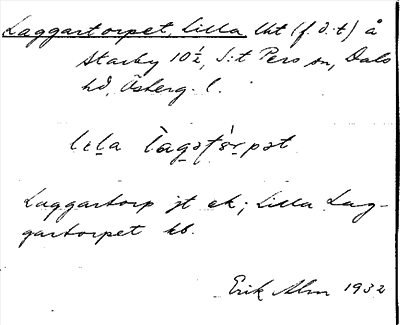 Laggartorpet, Lilla lht (f. d. t) å
Starby 10½, S:t Pers sn, Dals
hd, Österg. l.
lɩla lagətɵrpət
Laggartorp jt ek; Lilla Lag-
gartorpet kb.
Erik Alm 1932